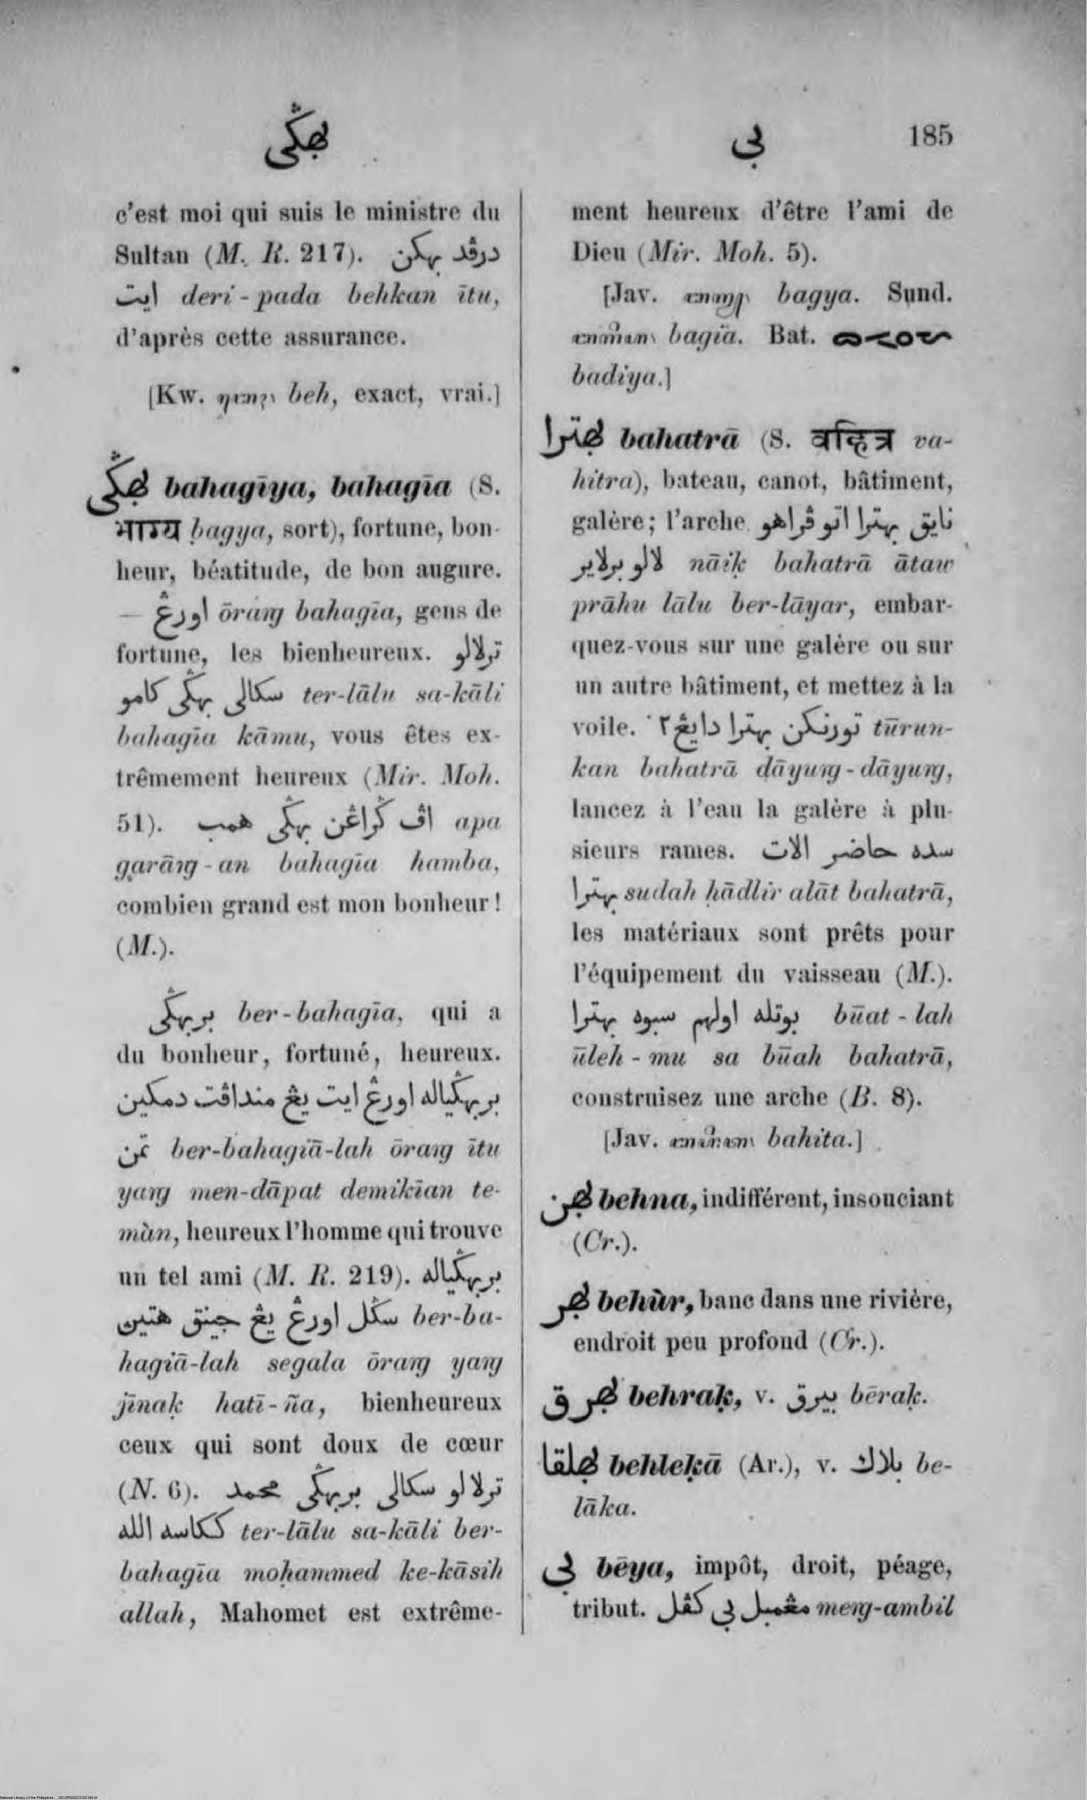 بهڬي
بي
185
c'est moi qui suis le ministre du
Sultan (M. R. 217). درڤد بهكن
ايت deri-pada behkan ītu,
d'après cette assurance.
[Kw. beh, exact, vrai.]
بهڬي bahagīya, bahagīa (S.
भाग्य bagya, sort), fortune, bon-
heur, béatitude, de bon augure.
— اورڠ ōrang bahagīa, gens de
fortune, les bienheureux. ترلالو
سكالي بهڬي كامو ter-lālu sa-kāli
bahagīa kāmu, vous êtes ex-
trêmement heureux (Mir. Moh.
51). اڤ ڬراڠن بهڬي همب apa
garāng-an bahagīa hamba,
combien grand est mon bonheur!
(M.).
بربهڬي ber-bahagīa, qui a
du bonheur, fortuné, heureux.
بربهڬياله اورڠ ايت يڠ منداڤت دمكين
تمن ber-bahagiā-lah ōrang ītu
yang men-dāpat demikīan te-
màn, heureux l'homme qui trouve
un tel ami (M. R. 219). بربهڬياله
سڬل اورڠ يڠ جينق هتين ber-ba-
hagiā-lah segala ōrang yang
jīnaḳ hatī-ña, bienheureux
ceux qui sont doux de cœur
(N. 6). ترلالو سكالي بربهڬي محمد
ككاسه الله ter-lālu sa-kāli ber-
bahagīa moḥammed ke-kāsih
allah, Mahomet est extrême-
ment heureux d'être l'ami de
Dieu (Mir. Moh. 5).
[Jav. bagya. Sund.
bagīa. Bat.
badiya.]
بهترا bahatrā (S. वहित्र va-
hitra), bateau, canot, bâtiment,
galère; l'arche. نايق بهترا اتو ڤراهو
لالو برلاير nāiḳ bahatrā ātaw
prāhu lālu ber-lāyar, embar-
quez-vous sur une galère ou sur
un autre bâtiment, et mettez à la
voile. تورنكن بهترا دايڠ٢ tūrun-
kan bahatrā dāyung-dāyung,
lancez à l'eau la galère à plu-
sieurs rames. سده حاضر الات
بهترا sudah ḥādlir alāt bahatrā,
les matériaux sont prêts pour
l'équipement du vaisseau (M.).
بوتله اولهم سبوه بهترا būat-lah
ūleh-mu sa būah bahatrā,
construisez une arche (B. 8).
[Jav. bahita.]
بهن behna, indifférent, insouciant
(Cr.).
بهر behùr, banc dans une rivière,
endroit peu profond (Cr.).
بهرق behraḳ, v. بيرق bēraḳ.
بهلقا behleḳā (Ar.), v. بلاك be-
lāka.
بي bēya, impôt, droit, péage,
tribut. مڠمبل بي كڤل meng-ambil